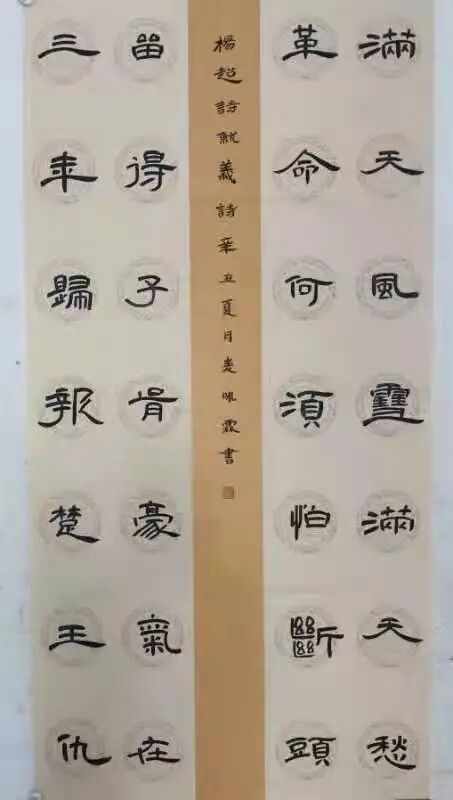 滿天風雪滿天愁
革命何須怕斷頭
楊超詩就義詩辛丑夏月霖書
留得子胥豪氣在
三年歸報楚王仇